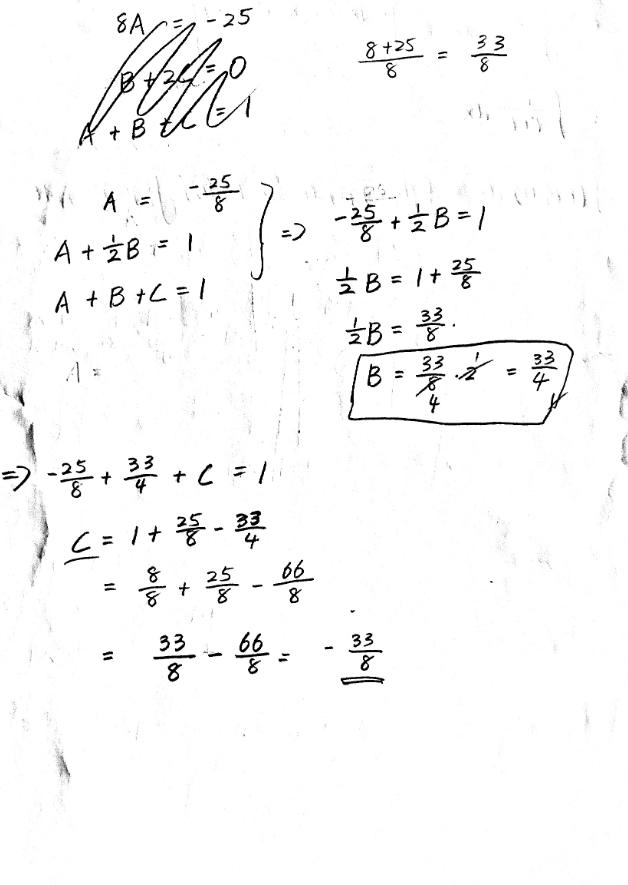 8A = -25
B + 2C = 0
A + B + C = 1
8+25/8 = 33/8
A = -25/8
A + 1/2B = 1
A + B + C = 1
A =
} => -25/8 + 1/2 B = 1
1/2 B = 1 + 25/8
1/2B = 33/8.
B = 33/8 . 2 = 33/4
1
4
=> -25/8 + 33/4 + C = 1
C = 1 + 25/8 - 33/4
= 8/8 + 25/8 - 66/8
= 33/8 - 66/8 = - 33/8